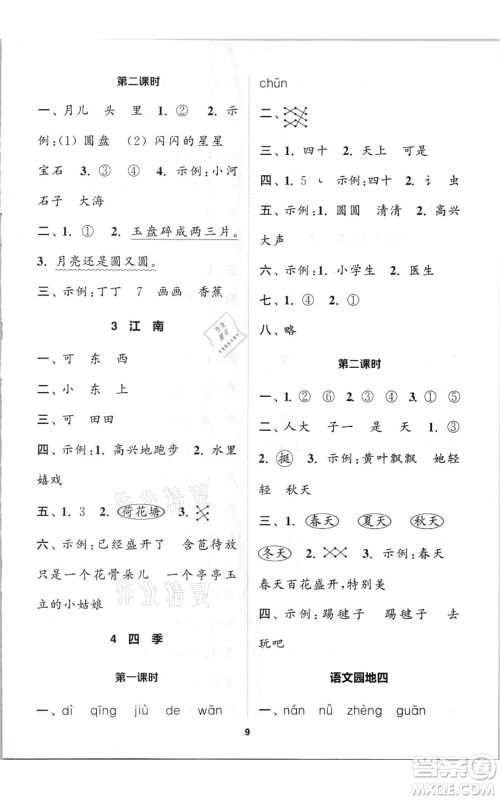 第二课时
一、月儿 头 里 2. 1. ② 2. 示
例:(1) 圆盘 (2) 闪闪的星星
宝石 3. ③ ④ 4. 示例:小河
石子 大海
二、1. ① 2. 玉盘碎成两三片。
3. 月亮还是圆又圆。
三、示例:丁丁 7 画画 香蕉
3 江 南
一、可 东 西
二、小 东 上
三、可 田田
四、示例:1. 高兴地跑步 2. 水里
嬉戏
五、1. 3 2. 荷花塘 3.
六、示例:已经盛开了 含苞待放
只是一个花骨朵儿 一个亭亭玉
立的小姑娘
4 四 季
第一课时
一、dì qīng jiù de wān
chūn
二、
三、1. 四十 2. 天上 可是
四、1. 5 ㇏ 2. 示例:四十 2. 讠 虫
五、示例:1. 圆圆 清清 2. 高兴
大声
六、示例:1. 小学生 2. 医生
七、1. ④ ① ② ③
八、略
第二课时
一、1. ② ⑥ 2. ③ ④ 3. ① ⑤
二、人大 子一 是 天 1. ③
2. 挺 3. 示例:黄叶飘飘 她轻
轻 秋天
三、1. 示例:春天 夏天 秋天
冬天 2. 3. 示例:春天
春天百花盛开,特别美
四、示例:踢毽子 踢毽子 去
玩吧
语文园地四
一、nán nǚ zhèng guān
9